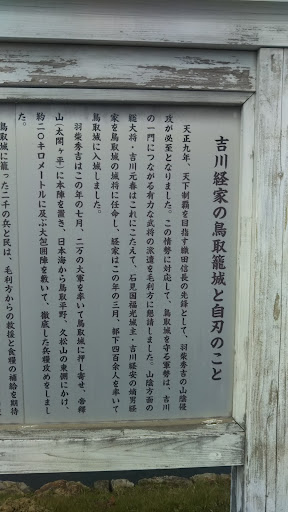 吉川経家の鳥取籠城と自刃のこと
天正九年、天下制覇を目指す織田信長の先鋒として、羽柴秀吉の山陰侵
攻が必至となりました。この情勢に対応して、鳥取城を守る軍勢は、吉川
の一門につながる有力な武将の派遣を毛利方に懇請しました。山陰方面の
総大将・吉川元春はこれにこたえて、石見国福光城主・吉川経安の嫡男経
家を鳥取城の城将に任命し、経家はこの年の三月、部下四百余人を率いて
鳥取城に入城しました。
羽柴秀吉はこの年の七月、二万の大軍を率いて鳥取城に押し寄せ、帝釈
山(太閤ヶ平)に本陣を置き、日本海から鳥取平野、久松山の東側にかけ、
約二〇キロメートルに及ぶ大包囲陣を敷いて、徹底した兵糧攻めをしまし
た。
鳥取城に籠った二千の兵と民は、毛利方からの救援と食糧の補給を期待